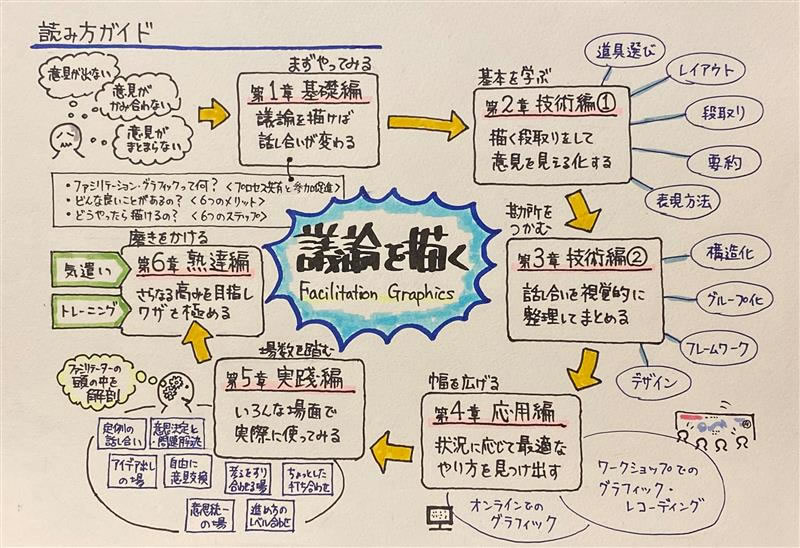 読み方ガイド
意見が出ない
意見が
かみ合わない
意見が
まとまらない
まずやってみる
第1章 基礎編
議論を描けば
話し合いが変わる
・ファシリテーション・グラフィックって何？ <プロセス共有と参加促進>
・どんな良いことがあるの？ <6つのメリット>
・どうやったら描けるの？ <6つのステップ>
基本を学ぶ
第2章 技術編①
描く段取りをして
意見を見える化する
道具選び
レイアウト
段取り
要約
表現方法
勘所を
つかむ
第3章 技術編②
話し合いを視覚的に
整理してまとめる
構造化
グループ化
フレームワーク
デザイン
議論を描く
Facilitation Graphics
幅を広げる
第4章 応用編
状況に応じて最適な
やり方を見つけ出す
ワークショップでの
グラフィック・
レコーディング
オンラインでの
グラフィック
場数を踏む
第5章 実践編
いろんな場面で
実際に使ってみる
ファシリテーターの
頭の中を
解剖
定例の
話し合い
意思決定と
問題解決
アイデア出し
の場
自由に
意見交換
考えをすり
合わせる場
ちょっとした
打ち合わせ
意思統一
の場
進め方の
レベル合わせ
磨きをかける
第6章 熟達編
さらなる高みを目指し
ワザを極める
気遣い
トレーニング